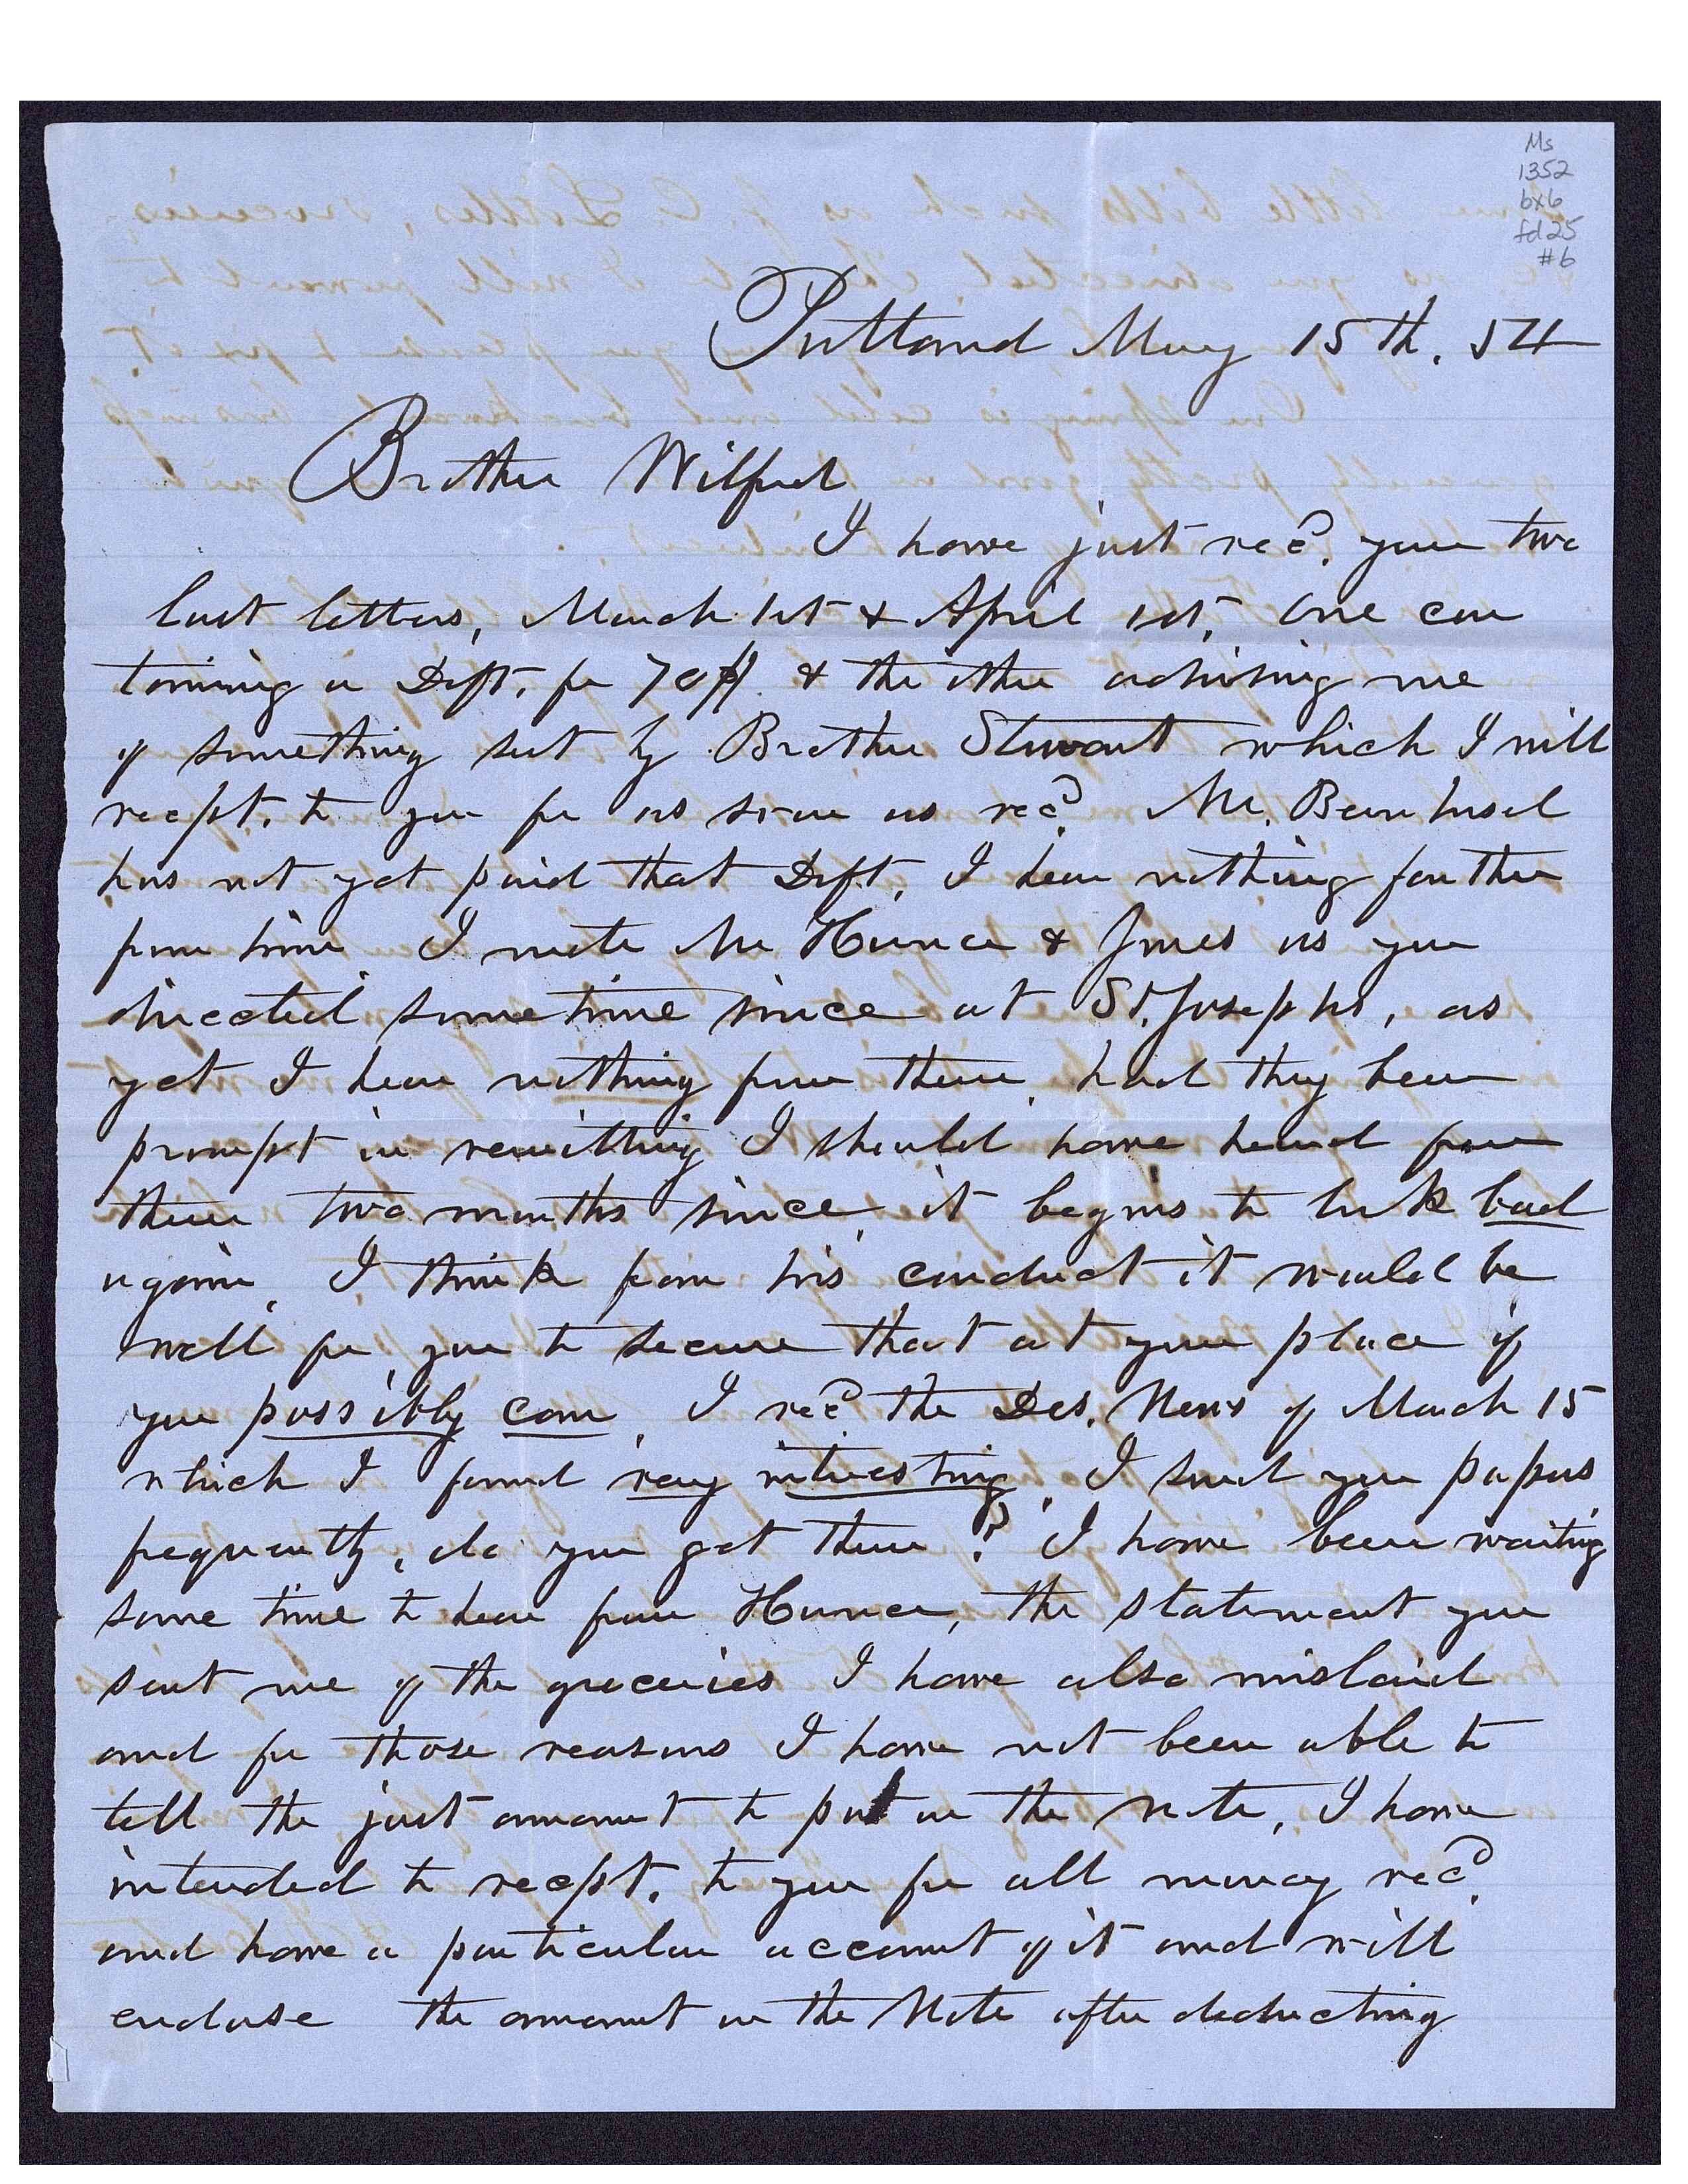 Ms
1352
bx6
fd25
#6
Portland May 15th. 54
Brother Wilford
I have just recd. your two
last letters, March 1st & April 1st, One con
taining a Dft. for 70$. & the other advising me
of something sent by Brother Stewart which I will
recpt. to you for as soon as recd. Mr. Bernhisel
has not yet paid that Dft, I hear nothing further
from him I wrote Mr Hunce & Jones as you
directed sometime since at St. Josephs, as
yet I hear nothing from them, had they been
prompt in remitting I should have heard from
them two months since, it begins to look bad
again, I think from his conduct it would be
well for you to secure that at your place if
you possibly can, I recd the Des. News of March 15
which I found very interesting, I send you papers
frequently, do you get them? I have been waiting
some time to hear from Hunce, the statement you
sent me of the groceries I have also mislaid
and for those reasons I have not been able to
tell the just amount to put on the note, I have
intended to recpt. to you for all money recd.
and have a particular account of it and will
endorse the amount on the Note after deducting